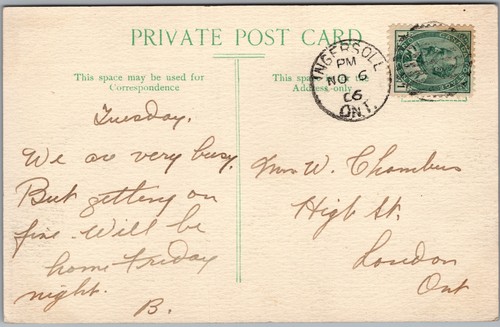 PRIVATE POST CARD
This space may be used for
Correspondence
This space is for the
Address only
INGERSOLL
PM
NO 6
06
ONT.
Tuesday.
We are very busy.
But getting on
fine. Will be
home Friday
night.
B.
Mrs W. Chambers
High St.
London
Ont